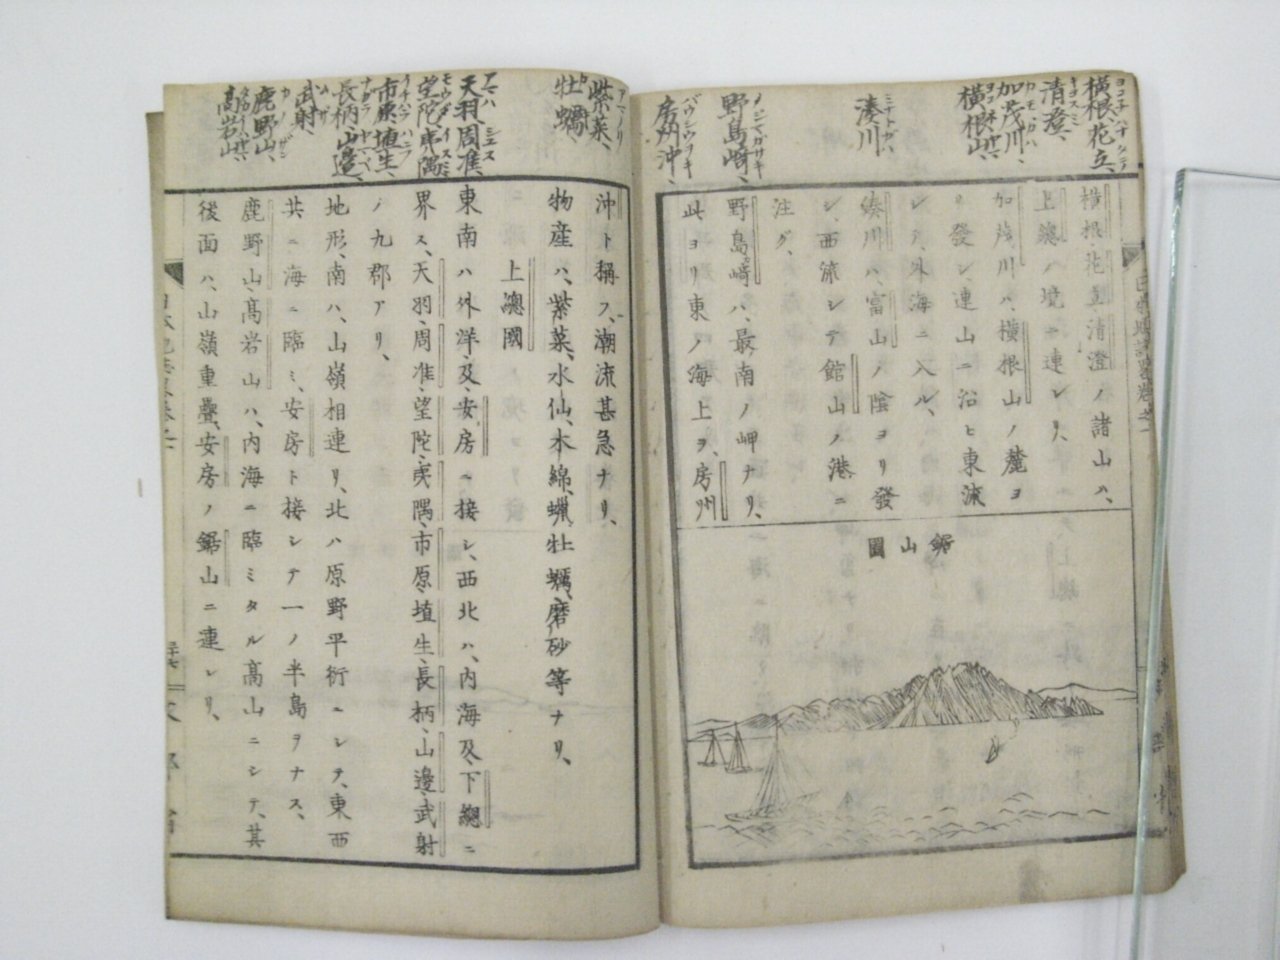 横根、花立、
清澄、
加茂川、
横根山、
湊川
野島崎、
房州沖、
横根花立清澄ノ諸山ハ、
上總ノ境ニ連レリ、
加茂川ハ、横根山ノ麓ヨ
リ發シ、連山ニ沿ヒ東流
シテ、外海ニ入ル、
湊川ハ、富山ノ陰ヨリ發
シ、西流シテ館山ノ港ニ
注グ、
野島崎ハ、最南ノ岬ナリ、
此ヨリ東ノ海上ヲ、房州
鋸山圖
紫菜、
牡蠣、
天羽、周准、
望陀、夷隅
市原、埴生、
長柄、山邊、
武射、
鹿野山、
高岩山、
沖ト稱フ、潮流甚急ナリ、
物産ハ、紫菜、水仙、木綿、蠟、牡蠣、磨砂等ナリ、
上總國
東南ハ外洋及安房ニ接シ、西北ハ、内海及下總ニ
界ス、天羽、周准、望陀、夷隅、市原、埴生、長柄、山邊、武射
ノ九郡アリ、
地形、南ハ、山嶺相連リ、北ハ原野平衍ニシテ、東西
共ニ海ニ臨ミ、安房ト接シテ一ノ半島ヲナス、
鹿野山高岩山ハ、内海ニ臨ミタル高山ニシテ、其
後面ハ、山嶺重疊、安房ノ鋸山ニ連レリ、